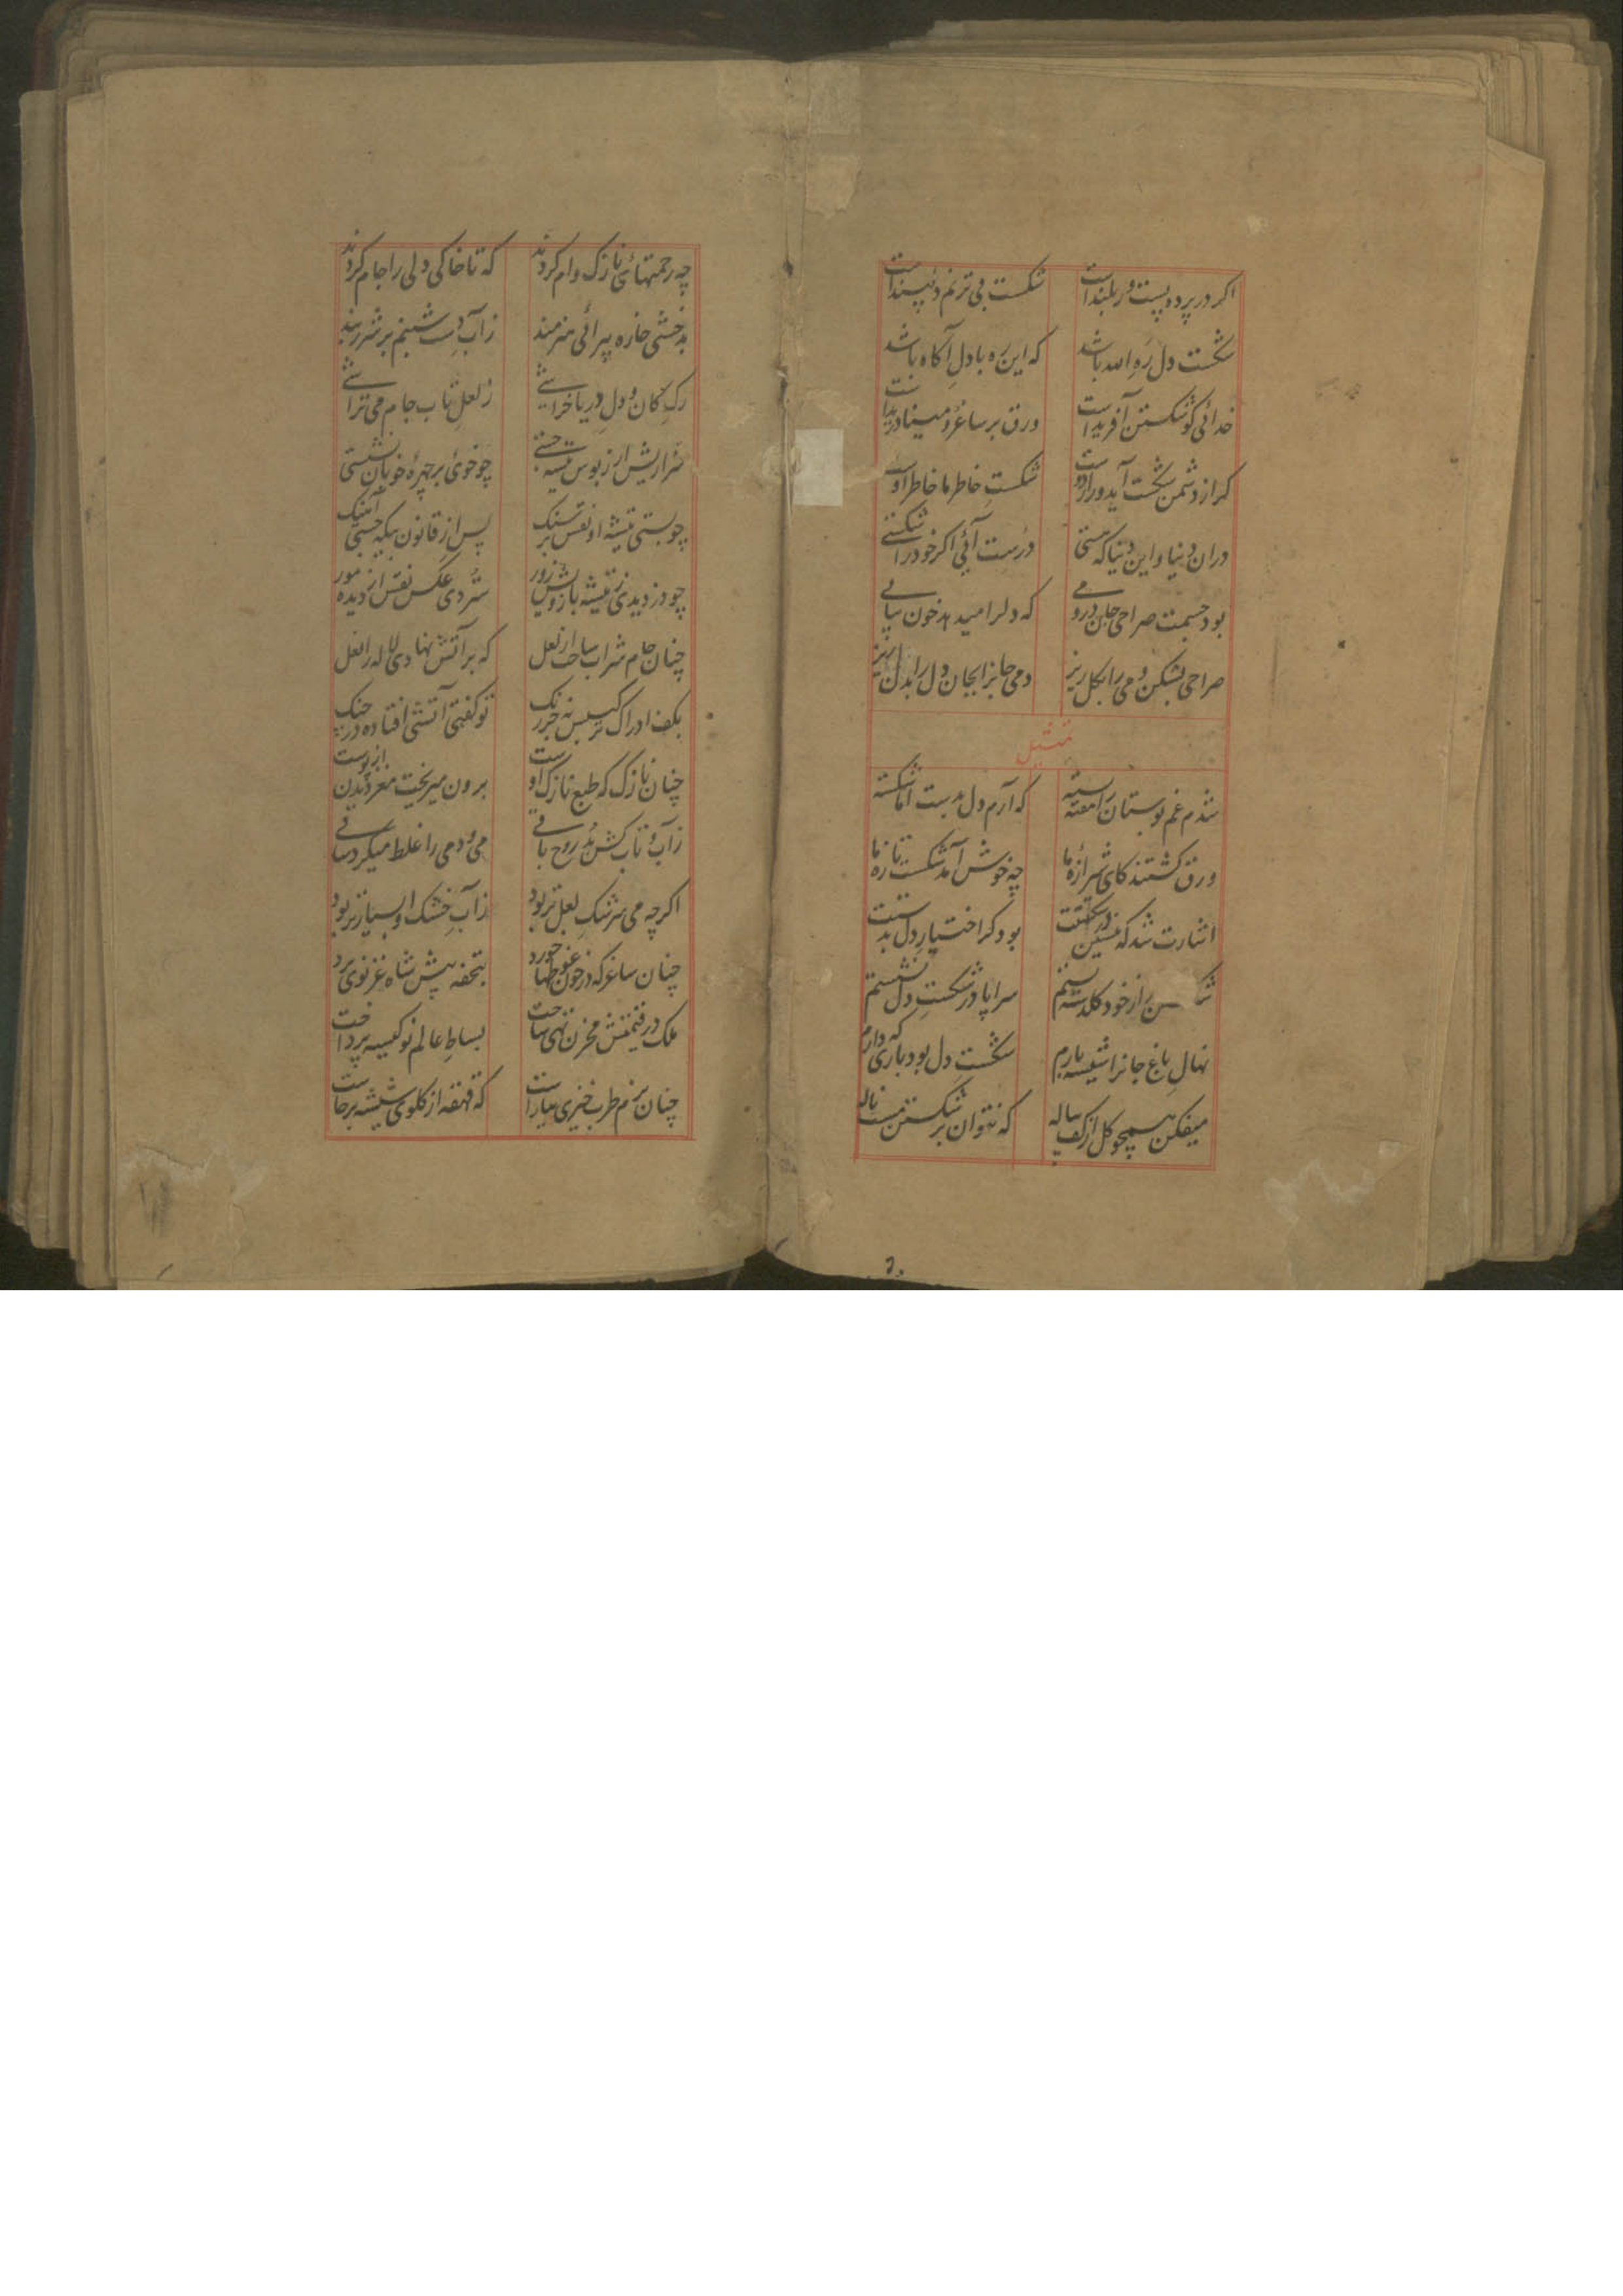 اکر در پرده پست ور بلند است شکست بی ترنم دلپسند است
شکست دل ره الله باشد که این ره با دل آکاه باشد
خدائی کو شکستن آفریدست ورق بر ساغر و مینا دریدست
کر از دشمن شکست آید ور از دوست شکست خاطر ما خاطر اوست
دران دنیا و این دنیا که هستی درست آئی اکر خود را شکستی
بود جسمت صراحی جان درو می که دلرا میدهد خون پیاپی
صراحی بشکن و می را بکل ریز دمی جانرا بجان دل را بدل ریز
تمثیل
شدم غم بوستان را دسته که آرم دل بدست اما شکسته
ورق کشتند کای شیرازه ما چه خوش آمد شکست تازه ما
اشارت شد که بنشین در شکست بود کر اختیار دل بدستت
از خود کلدسته بستم سراپا در شکست دل نشستم
نهال باغ جانرا شیشه بارم شکست دل بود باری که دارم
میفکن همچو کل از کف پیاله که نتوان بر شکستن بست ناله
چه رحمتهائی نازک وام کردند که تا خاکی دلی را جام کردند
بدخشی خاره پیرائی هنرمند ز آب دست شبنم بر شرر بند
رک کان و دل دریا خراشی ز لعل ناب جام می تراشی
شرارش از زبوس تیشه جستی چو خوی بر چهره خوبان نشستی
چو بستی تیشه او نقش بر سنک پس از قانون بیکه جستی آهنک
چو دزدیدی ز تیشه بازویش زور ستردی عکس نقش از دیده مور
چنان جام شراب ساخت از لعل که بر آتش نهادی لاله را نعل
بکف ادراک بس نه جز رنک تو کفتی آتشی افتاده در چنک
چنان نازک که طبع نازک اوست برون میریخت مغز دیدن از پوست
ز آب و تابکش بد روح باقی می و دمی را غلط میکرد ساقی
اکرچه می سرشک لعل تر بود ز آب خشک او بسیار تر بود
چنان ساغر که در خون غوطها خورد بتحفه پیش شاه غزنوی برد
ملک در قیمتش مخزن تهی ساخت بساط عالم نو کیسه پرداخت
چنان بزم طرب خیزی بیاراست که قهقه از کلوی شیشه برخاست